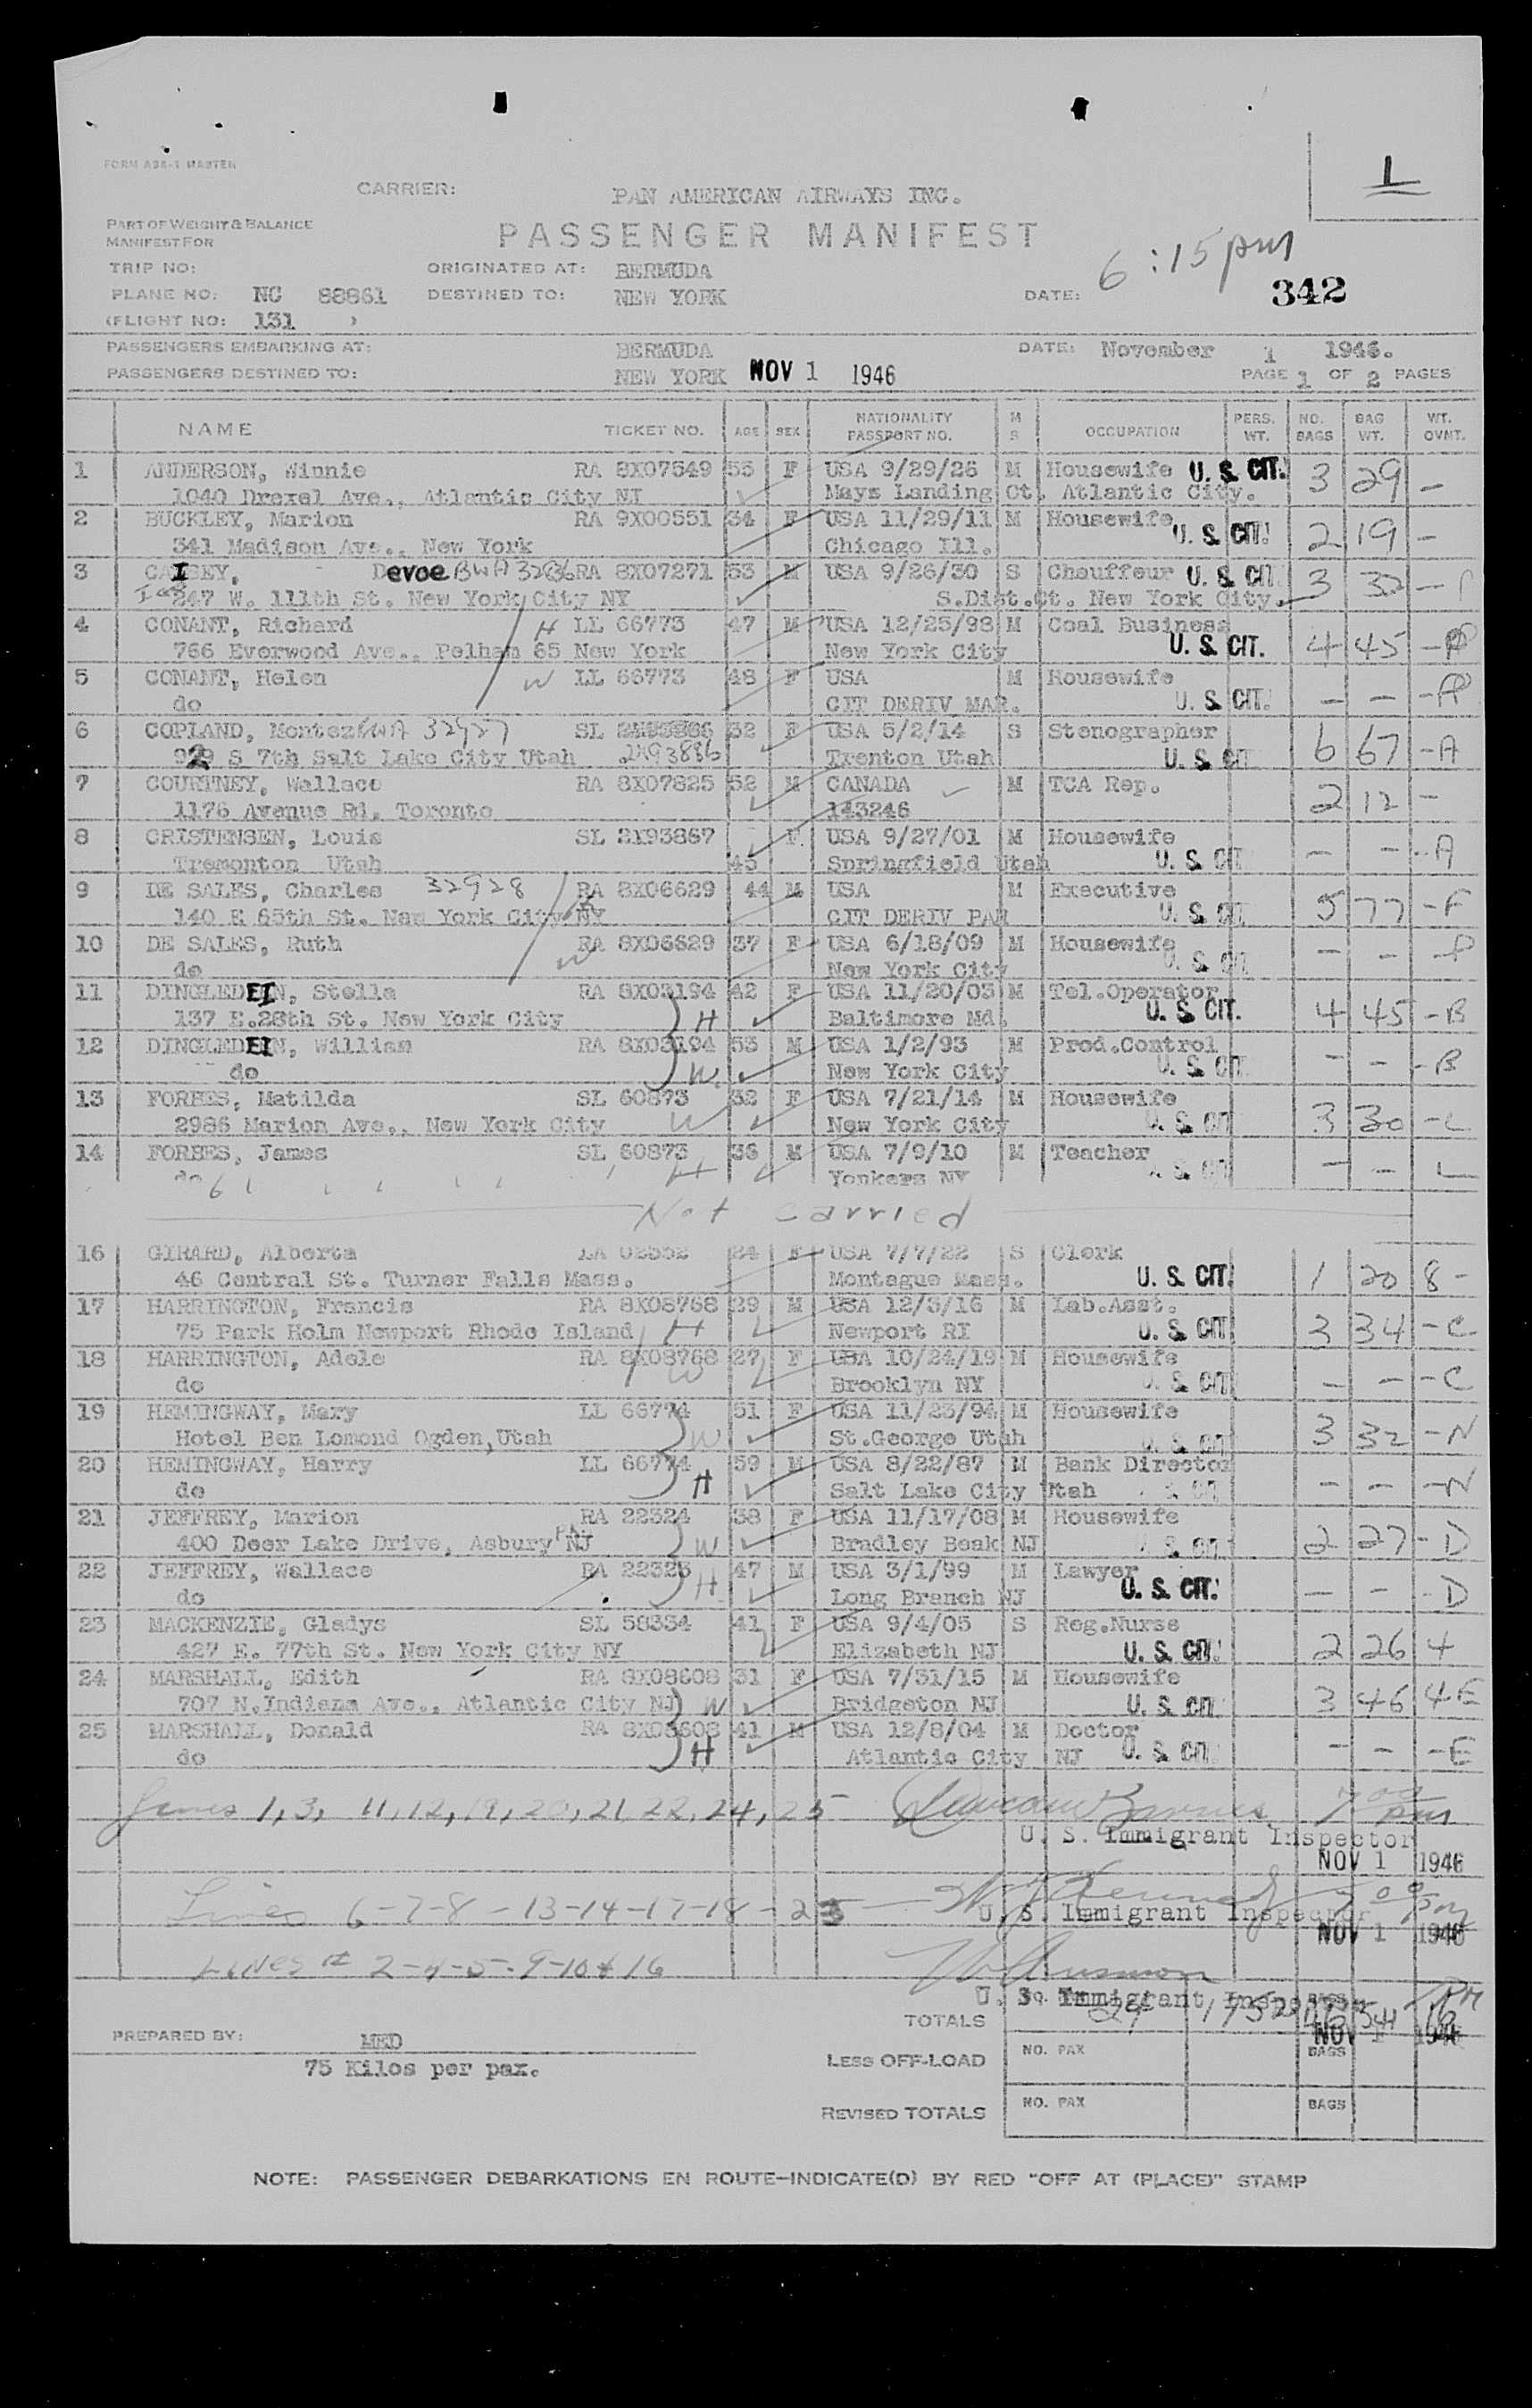 1
FORM A3A-1 MASTER
CARRIER: PAN AMERICAN AIRWAYS INC.
PART OF WEIGHT & BALANCE
MANIFEST FOR
PASSENGER MANIFEST
6:15 pm
TRIP NO: ORIGINATED AT: BERMUDA
PLANE NO: NC 88861 DESTINED TO: NEW YORK DATE: 342
(FLIGHT NO: 131 )
PASSENGERS EMBARKING AT: BERMUDA DATE: November 1 1946.
PASSENGERS DESTINED TO: NEW YORK NOV 1 1946 PAGE 1 OF 2 PAGES
NAME TICKET NO. AGE SEX NATIONALITY PASSPORT NO. M S OCCUPATION PERS. WT. NO. BAGS BAG WT. WT. OVNT.
1 ANDERSON, Winnie RA 8X07549 55 F USA 9/29/26 M Housewife U. S. CIT. 3 29 -
1040 Drexel Ave., Atlantic City NJ Mays Landing Ct. Atlantic City.
2 BUCKLEY, Marion RA 9X00551 34 F USA 11/29/11 M Housewife U. S. CIT. 2 19 -
341 Madison Ave., New York Chicago Ill.
3 CAISEY, Devoe BWA 3286 RA 8X07271 53 M USA 9/26/30 S Chauffeur U. S. CIT 3 32 -
247 W. 111th St. New York City NY S.Dist.Ct. New York City.
4 CONANT, Richard H LL 66773 47 M USA 12/25/98 M Coal Business U. S. CIT. 4 45 -
766 Everwood Ave., Pelham 65 New York New York City
5 CONANT, Helen W LL 66773 48 F USA M Housewife U. S. CIT. - - -
do CIT DERIV MAR.
6 COPLAND, Montez BWA 32927 SL 32 F USA 5/2/14 S Stenographer U. S. CIT 6 67 - A
929 S 7th Salt Lake City Utah 2X93886 Trenton Utah
7 COURTNEY, Wallace RA 8X07825 52 M CANADA M TCA Rep. 2 12 -
1176 Avenue Rd. Toronto 143246
8 CRISTENSEN, Louis SL 2X93867 F USA 9/27/01 M Housewife U. S. CIT - - - A
Tremonton Utah 45 Springfield Utah
9 DE SALES, Charles 32928 RA 8X06629 44 M USA M Executive U. S. CIT 5 77 - F
140 E 65th St. New York City NY CIT DERIV PAR
10 DE SALES, Ruth W RA 8X06629 37 F USA 6/18/09 M Housewife U. S. CIT - - -
do New York City
11 DINGLEDEIN, Stella RA 8X03194 42 F USA 11/20/03 M Tel.Operator U. S. CIT. 4 45 - B
137 E.28th St. New York City H Baltimore Md.
12 DINGLEDEIN, William RA 8X03194 53 M USA 1/2/93 M Prod.Control U. S. CIT - - - B
do W. New York City
13 FORBES, Matilda SL 60873 32 F USA 7/21/14 M Housewife U. S. CIT 3 30 - L
2986 Marion Ave., New York City W New York City
14 FORBES, James SL 60873 36 M USA 7/9/10 M Teacher S CIT - - L
do H Yonkers NY
Not carried
16 GIRARD, Alberta LA 02552 24 F USA 7/7/22 S Clerk U. S. CIT. 1 20 8 -
46 Central St. Turner Falls Mass. Montague Mass.
17 HARRINGTON, Francis RA 8X08768 29 M USA 12/3/16 M Lab.Asst. U. S. CIT 3 34 - C
75 Park Holm Newport Rhode Island H Newport RI
18 HARRINGTON, Adele RA 8X08768 27 F USA 10/24/19 M Housewife U. S. CIT - - - C
do W Brooklyn NY
19 HEMINGWAY, Mary LL 66774 51 F USA 11/23/94 M Housewife U. S. CIT 3 32 - N
Hotel Ben Lomond Ogden, Utah W St.George Utah
20 HEMINGWAY, Harry LL 66774 59 M USA 8/22/87 M Bank Director - - - N
do H Salt Lake City Utah
21 JEFFREY, Marion RA 22324 38 F USA 11/17/08 M Housewife U. S. CIT 2 27 - D
400 Deer Lake Drive, Asbury NJ W Bradley Beak NJ
22 JEFFREY, Wallace RA 22323 47 M USA 3/1/99 M Lawyer U. S. CIT. - - - D
do H Long Branch NJ
23 MACKENZIE, Gladys SL 58334 41 F USA 9/4/05 S Reg.Nurse U. S. CIT. 2 26 4
427 E. 77th St. New York City NY Elizabeth NJ
24 MARSHALL, Edith RA 8X08608 31 F USA 7/31/15 M Housewife U. S. CIT 3 46 4 E
707 N.Indiana Ave., Atlantic City NJ W Bridgeton NJ
25 MARSHALL, Donald RA 8X08608 41 M USA 12/8/04 M Doctor U. S. CIT. - - - E
do H Atlantic City NJ
1, 3, 11, 12, 19, 20, 21, 22, 24, 25 7 00 pm
U. S. Immigrant Inspector
NOV 1 1946
Lines 6-7-8-13-14-17-18-23 7 00 pm
U. S. Immigrant Inspector
NOV 1 1946
Lines # 2-4-5-9-10 & 16
U. S. Immigrant Inspector
TOTALS 24 544 16
NOV 1 1946
PREPARED BY: MED
75 Kilos per pax.
LESS OFF-LOAD NO. PAX BAGS
REVISED TOTALS NO. PAX BAGS
NOTE: PASSENGER DEBARKATIONS EN ROUTE-INDICATE(D) BY RED "OFF AT (PLACE)" STAMP